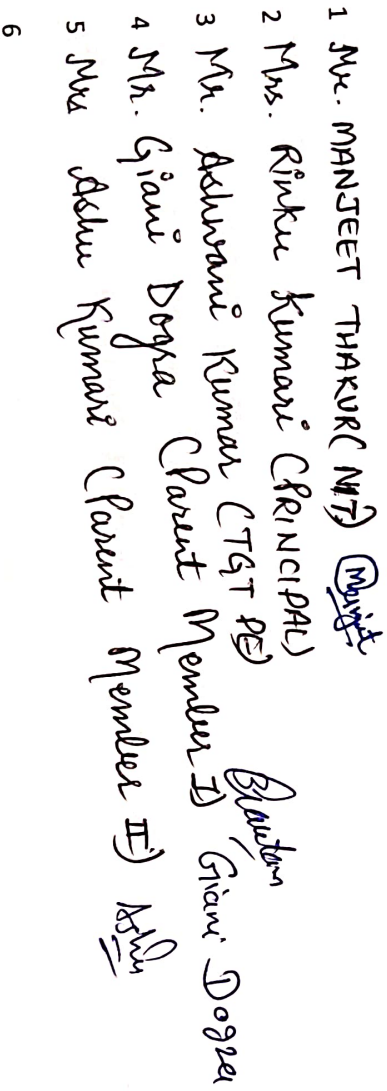 1 Mr. MANJEET THAKUR (NIT) Manjit
2 Mrs. Rinku Kumari (PRINCIPAL)
3 Mr. Ashwani Kumar (TGT PE)
4 Mr. Giani Dogra (Parent Member I) Giani Dogra
5 Mrs Ashu Kumari (Parent Member II) Ashu
6